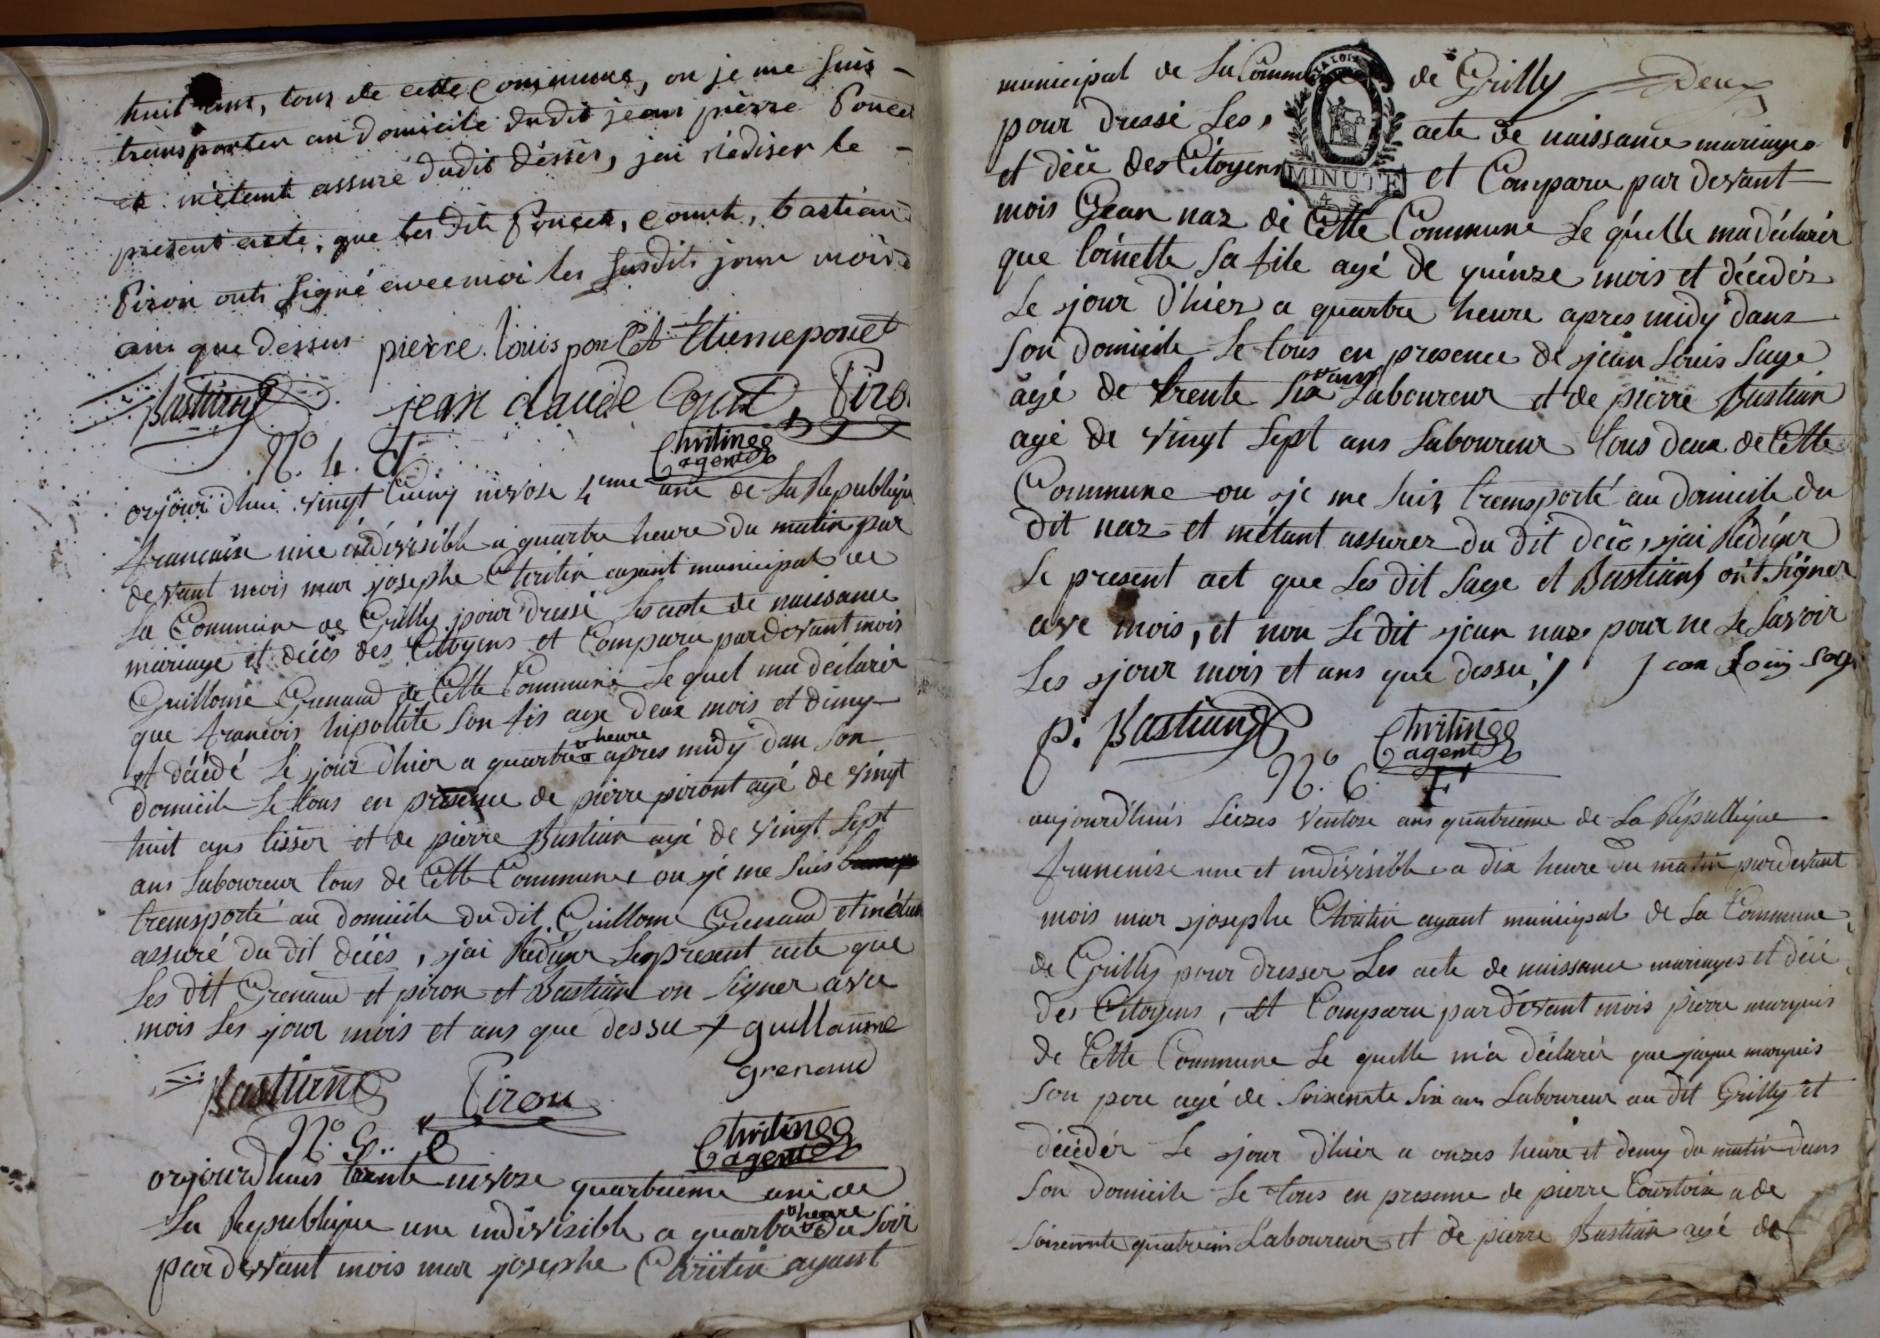 huit ans, tous de cette commune, ou je me suis –
transporter au domicile dudit jean pierre Poncet
et m'etant assuré dudit déssès, jai rédiser le –
présent acte, que les dits Poncet, Comte, bastian
Piron onts signé avec moi les susdits jour mois
ans que dessus pierre louis poncet Etienne poncet
Bastian jean claude Comte Piron
Christin
agent
N.° 4. d
orjourdhui vingt cinq nivose 4eme ane de La Republique
francaise une indivisible a quartre heure du matin par
devant mois mar josephe Christin agant municipal de
La Commune de Grilly pour drussé les acte de naissance
mariage et décés des Citoyens et Comparu pardevant mois
Guillome Grenaud de Cette Commune Le quel ma déclarér
que francois hipollite son fis agé deux mois et dimy
et décédé Le jour d'hier a quartre heure apres midy dan son
domicile Le tous en presence de pierre piront agé de vingt
huit ans tisser et de pierre Bastian agé de vingt sept
ans Laboureur tous de Cette Commune ou je me suis
transporté au domicile du dit Guillome Grenaud et métant
assuré du dit décés, jai Rediger Le present acte que
Les dit Grenaud et piron et Bastian on signer avec
mois Les jour mois et ans que dessu guillaume
grenaud
Bastian Piron
Christin
agent
N.° 5.
orjourdhuis trente nivose quartrieme ane de
La Republique une indivisible a quartre heure du soir
pardevant mois mar josephe Christin agant
municipal de La Commune de Grilly deux
pour drussé Les acte de naissance mariages
et décé des Citoyens et Comparu par devant
MINUTE
mois Gean naz de Cette Commune Le quelle ma déclarér
que loinette sa file agé de quinze mois et décédér
Le jour d'hier a quartre heure apres midy dans
son domicile Le tous en presence de jean Louis Sage
agé de trente six ans Laboureur et de pierre Bastian
agé de vingt sept ans Laboureur tous deux de Cette
Commune ou je me suis transporté au domicile du
dit naz et métant assurer du dit décé, jai Rédiger
Le present act que Les dit Sage et Bastians ont signer
ave mois, et non Le dit jean naz pour ne Le savoir
Les jour mois et ans que dessu; Jean Loui Sage
p. Bastian Christin
agent
N.° 6. F
aujourd'huis seizes ventose ans quatrieme de La Républlique
francaise une et indivisible a dix heure du matin pardevant
mois mar josephe Christin agant municipal de La Commune
de Grilly pour dresser Les acte de naissance mariages et décé
des Citoyens, et Comparu pardevant mois pierre marquis
de Cette Commune Le quelle m'a déclarér que jaque marquis
son pere agé de soixante six ans Laboureur au dit Grilly et
décédér Le jour d'hier a onzes heure et demy du matin dans
son domicile Le tous en presence de pierre Courtoix a de
soixante quatre ans Laboureur et de pierre Bastian agé de